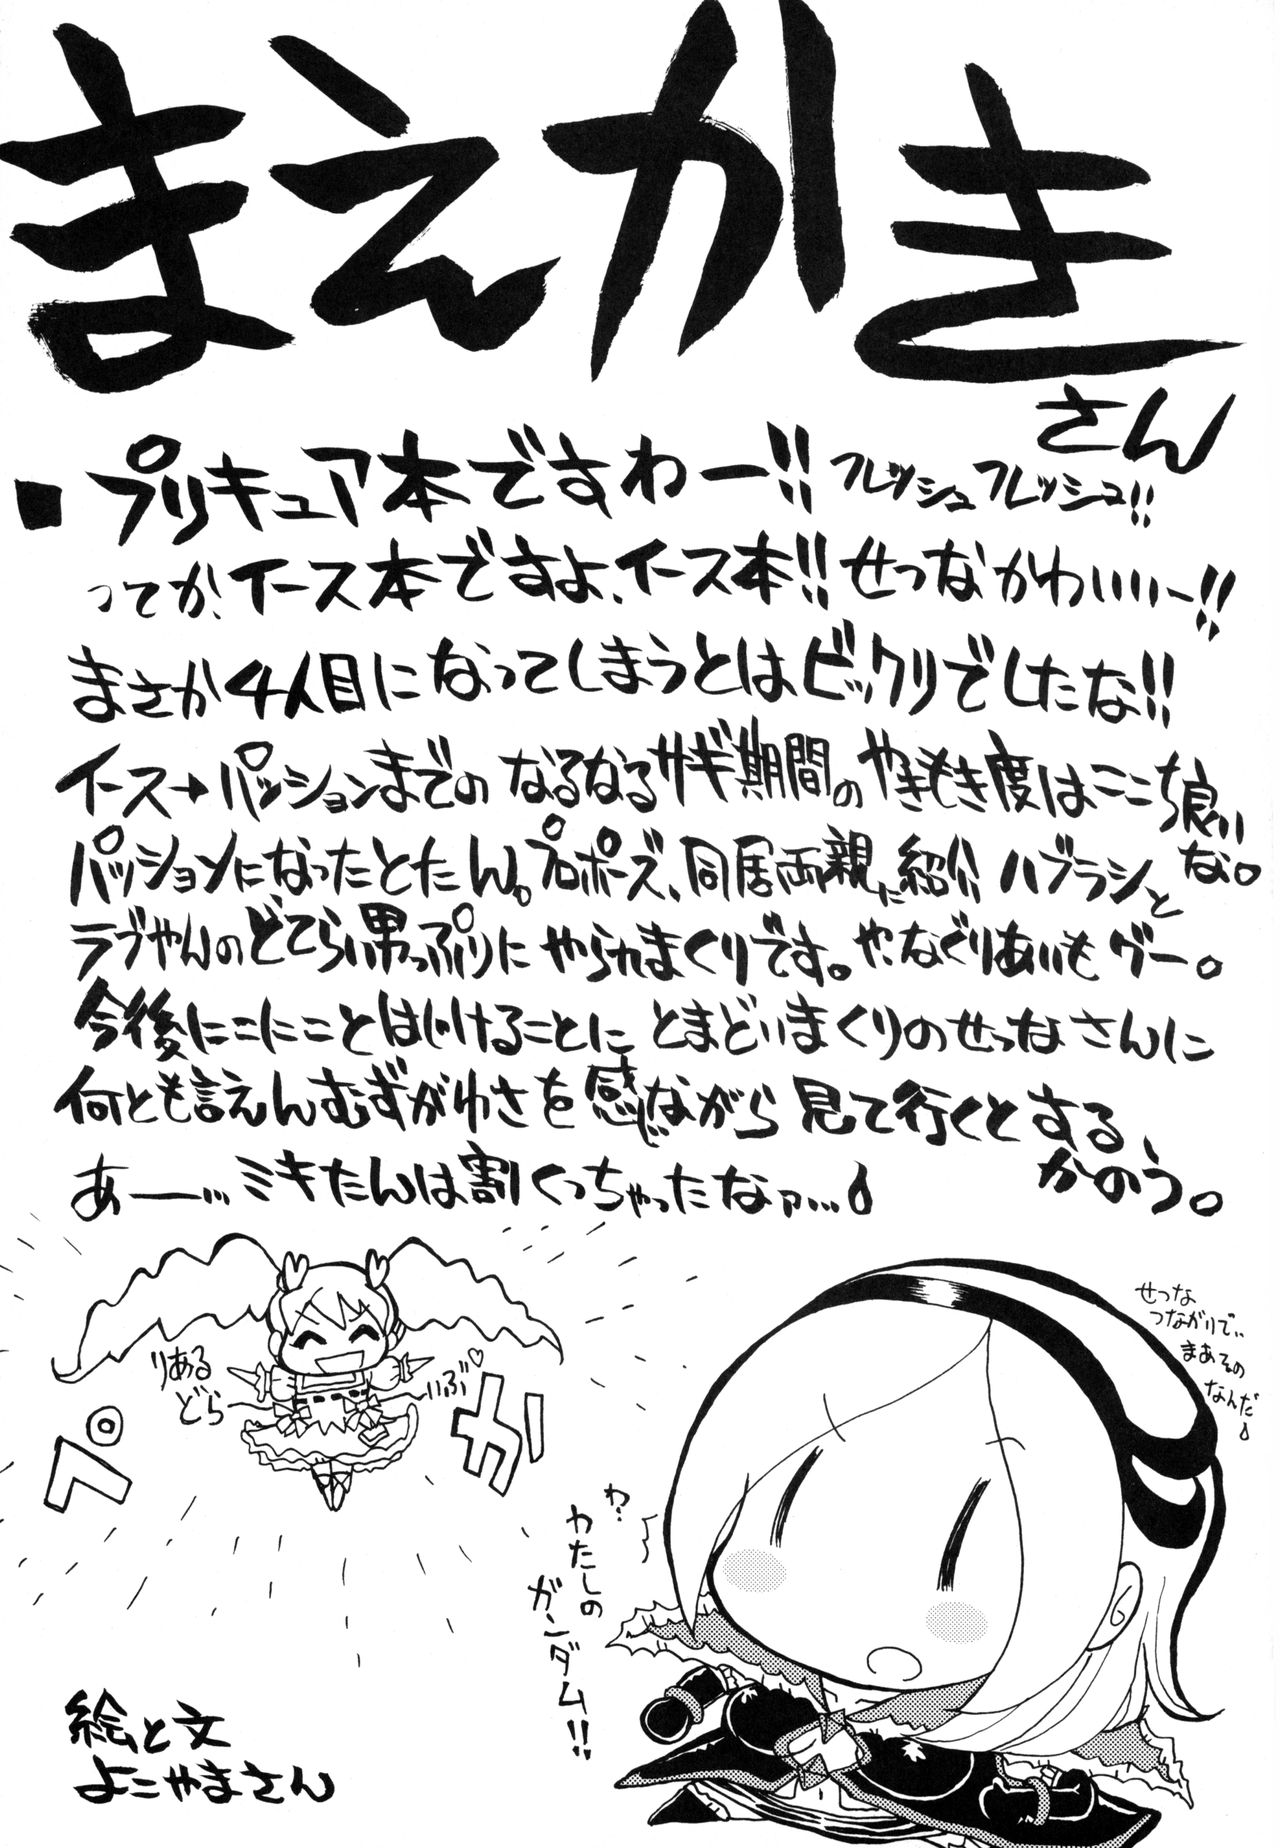 まえかき
さん
■プリキュア本ですわー!! フレッシュフレッシュ!!
ってか、イース本ですよ、イース本!! せつなかわいいー!!
まさか4人目になってしまうとはビックリでしたな!!
イース→パッションまでの なるなるサギ期間の やきもき度はここち良いな。
パッションになったとたん。プロポーズ、同居両親に紹介 ハブラシと
ラブやんのどてらい男っぷりに やられまくりです。や、なぐりあいもグー。
今後にこにことはじけることに とまどいまくりのせつなさんに
何とも言えんむずがゆさを 感じながら 見て行くとする、かのう。
あー… ミキたんは割くっちゃったなァ…
りある
どら
いぶ♡
ペカ
せつな
つながりで、
まあその
なんだ
わ、
わたしの
ガンダム!!
絵と文
よこやまさん